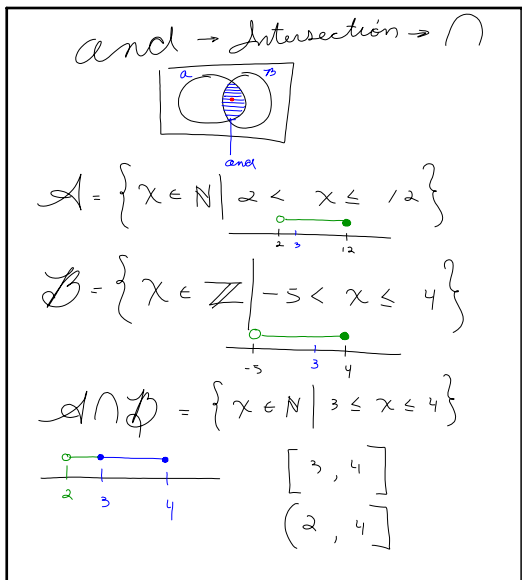 and → Intersection → ∩
a B
and
A = { x ∈ ℕ | 2 < x ≤ 12 }
2 3 12
B = { x ∈ ℤ | -5 < x ≤ 4 }
-5 3 4
A ∩ B = { x ∈ ℕ | 3 ≤ x ≤ 4 }
2 3 4
[ 3 , 4 ]
( 2 , 4 ]